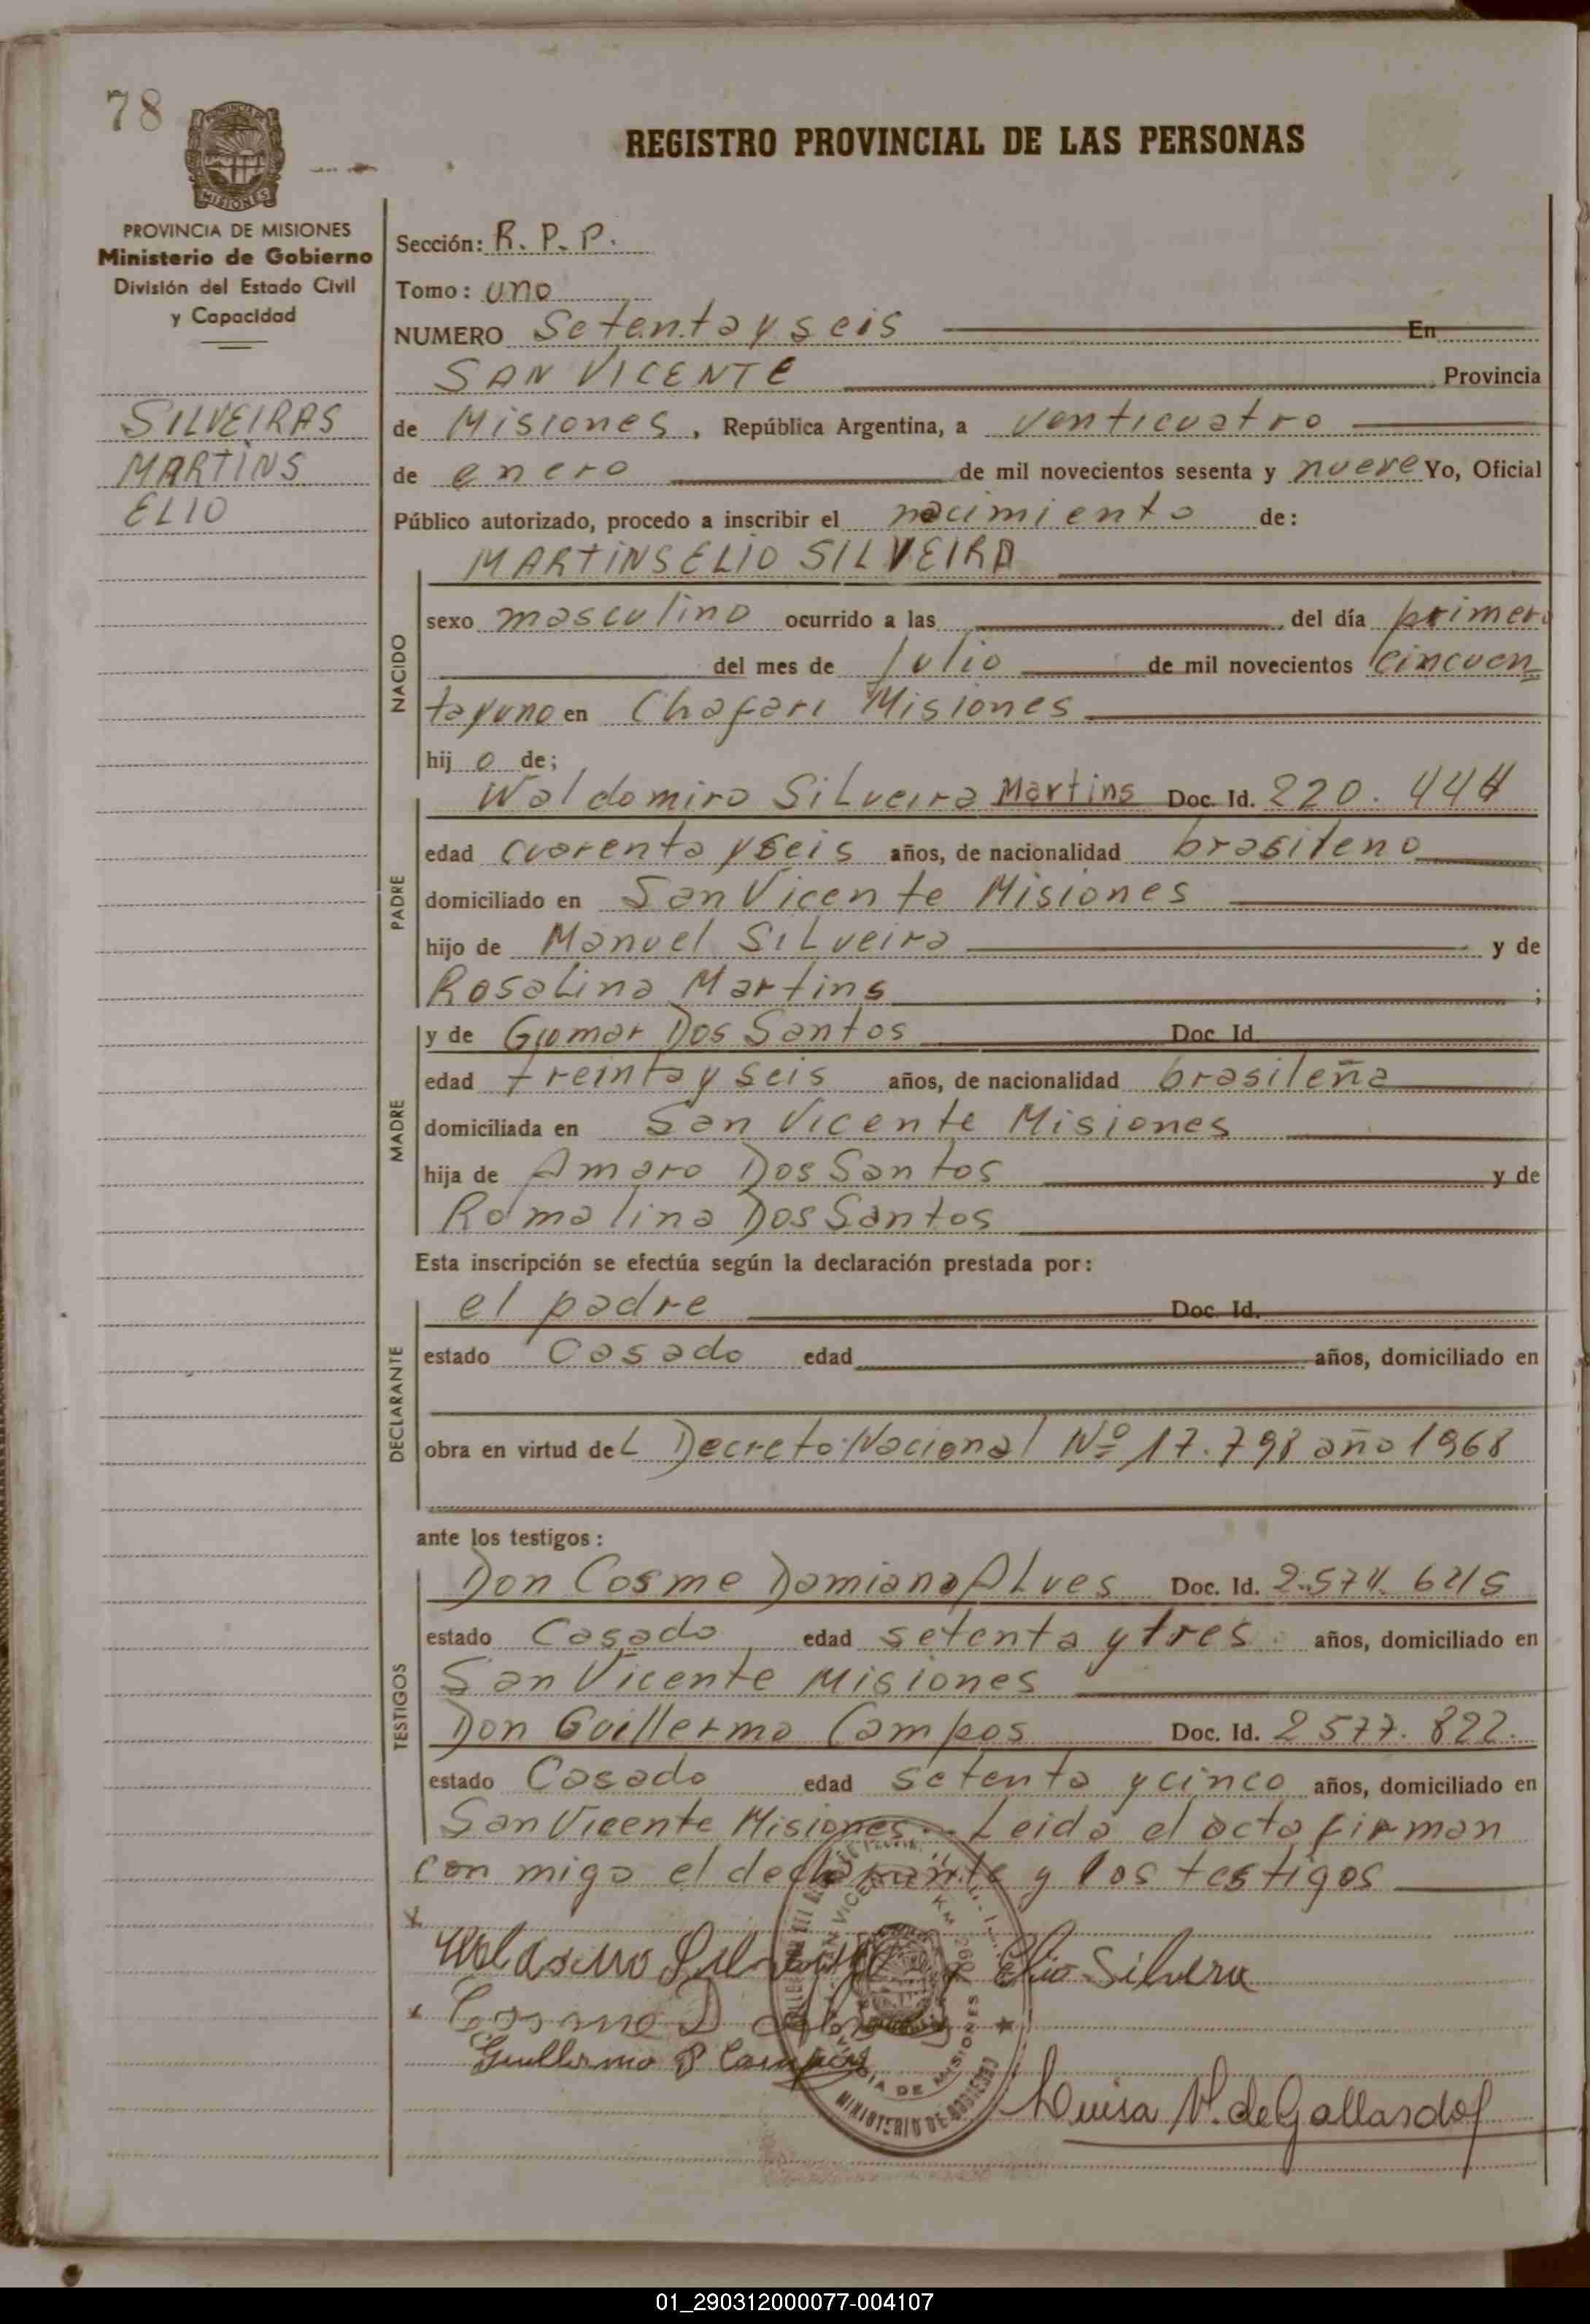 78
REGISTRO PROVINCIAL DE LAS PERSONAS
PROVINCIA DE MISIONES
Ministerio de Gobierno
División del Estado Civil
y Capacidad
SILVEIRAS
MARTINS
ELIO
Sección: R. P. P.
Tomo: uno
NUMERO Setenta y seis En
SAN VICENTE Provincia
de Misiones, República Argentina, a venticuatro
de enero de mil novecientos sesenta y nueve Yo, Oficial
Público autorizado, procedo a inscribir el nacimiento de:
NACIDO
MARTINS ELIO SILVEIRA
sexo masculino ocurrido a las del día primero
del mes de Julio de mil novecientos cincuen
tayuno en Chafari Misiones
hij o de;
PADRE
Waldomiro Silveira Martins Doc. Id. 220.444
edad cuarenta y seis años, de nacionalidad brasileno
domiciliado en San Vicente Misiones
hijo de Manuel Silveira y de
Rosalina Martins ;
MADRE
y de Giomar Dos Santos Doc. Id
edad treinta y seis años, de nacionalidad brasileña
domiciliada en San Vicente Misiones
hija de Amaro Dos Santos y de
Romalina Dos Santos
Esta inscripción se efectúa según la declaración prestada por:
DECLARANTE
el padre Doc. Id.
estado Casado edad años, domiciliado en
obra en virtud del Decreto Nacional Nº 17.798 año 1968
ante los testigos:
TESTIGOS
Don Cosme Damiano Alves Doc. Id. 2.574.645
estado Casado edad setenta y tres años, domiciliado en
San Vicente Misiones
Don Guillermo Campos Doc. Id. 2577.822.
estado Casado edad setenta y cinco años, domiciliado en
San Vicente Misiones. Leida el acta firman
con migo el declarante y los testigos
Elio Silvera
Cosme D
Guillermo P Campos
PROVINCIA DE MISIONES
MINISTERIO DE GOBIERNO
Luisa V. de Gallardo
01_290312000077-004107